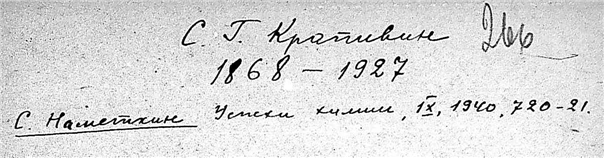 С. Г. Крапивин 266
1868 – 1927
С. Наметкин Успехи химии, IX, 1940, 720-21.